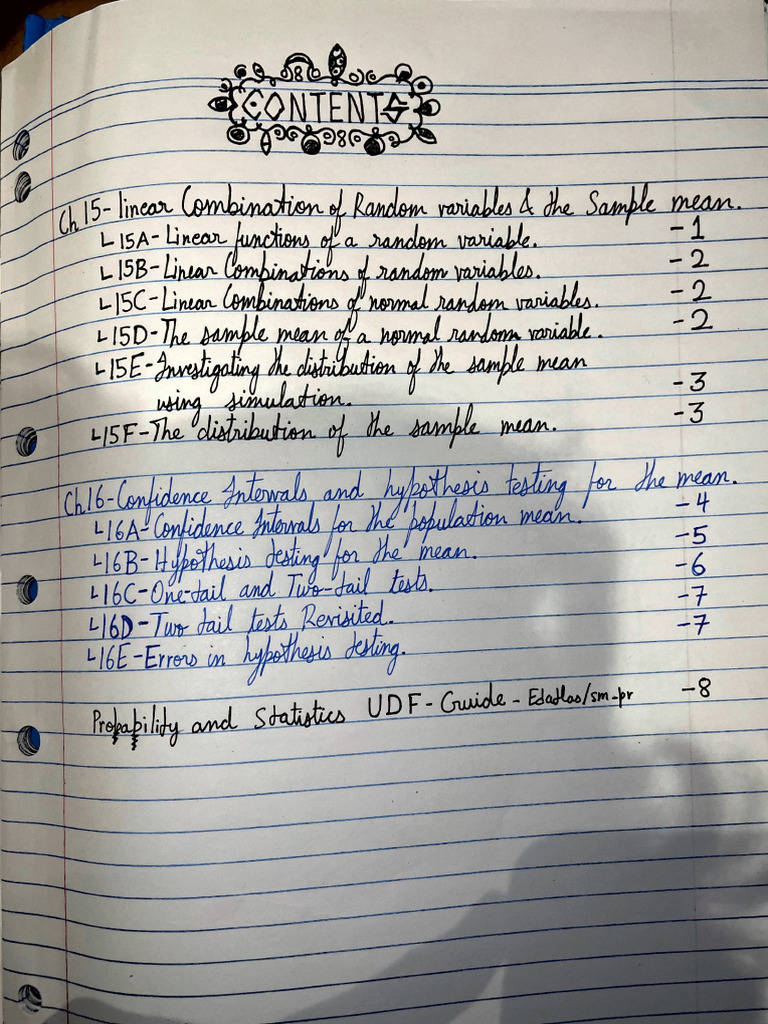 CONTENTS
Ch 15- linear Combination of Random variables & the Sample mean.
15A- Linear functions of a random variable. -1
15B- Linear Combinations of random variables. -2
15C- Linear Combinations of normal random variables. -2
15D- The sample mean of a normal random variable. -2
15E- Investigating the distribution of the sample mean
using simulation. -3
15F- The distribution of the sample mean. -3
Ch16- Confidence Intervals and hypothesis testing for the mean.
16A- Confidence Intervals for the population mean. -4
16B- Hypothesis testing for the mean. -5
16C- One-tail and Two-tail tests. -6
16D- Two tail tests Revisited. -7
16E- Errors in hypothesis testing. -7
Propapility and Statistics UDF- Guide - Edatlas/sm-pr -8